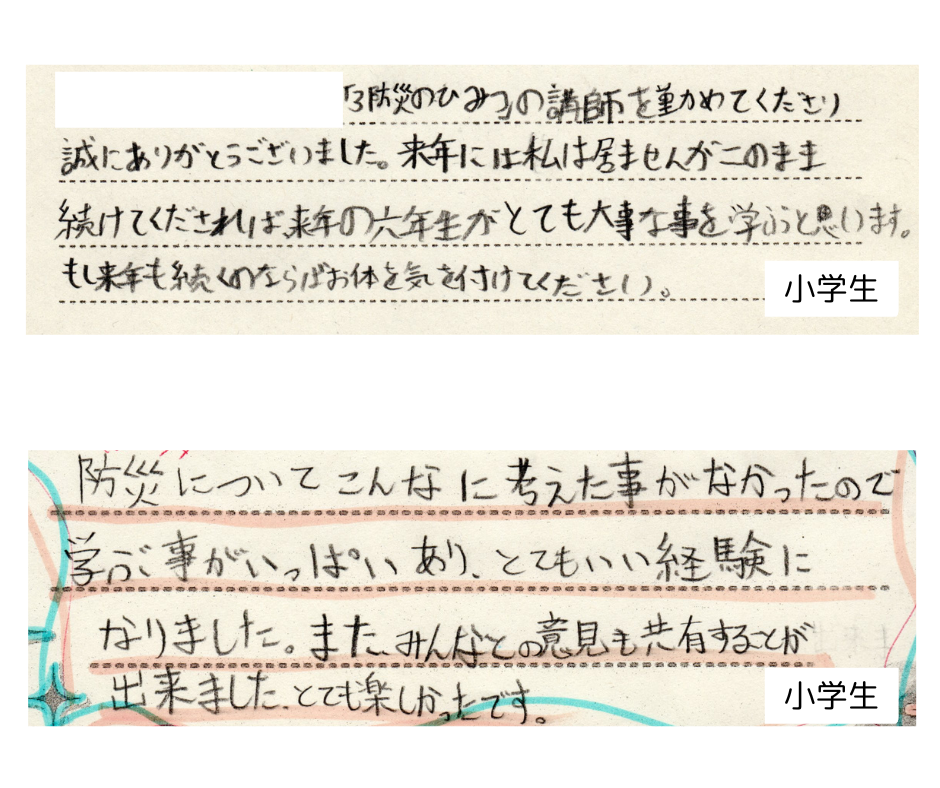 「3防災のひみつ」の講師を勤めてくださり
誠にありがとうございました。来年には私は居ませんがこのまま
続けてくだされば、来年の六年生がとても大事な事を学ぶと思います。
もし来年も続くのならばお体を気を付けてください。
小学生
防災についてこんなに考えた事がなかったので
学ぶ事がいっぱいあり、とてもいい経験に
なりました。また、みんなとの意見も共有することが
出来ました、とても楽しかったです。
小学生